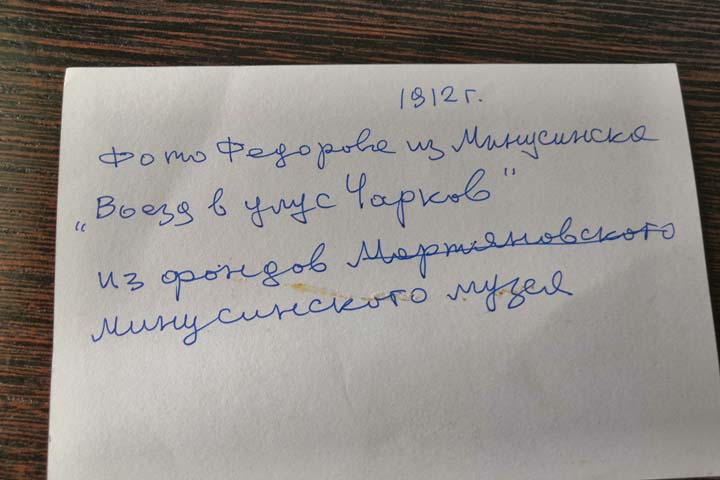 1912 г.
Фото Федорова из Минусинска
„Въезд в улус Чарков"
из фондов Мартяновского
Минусинского музея